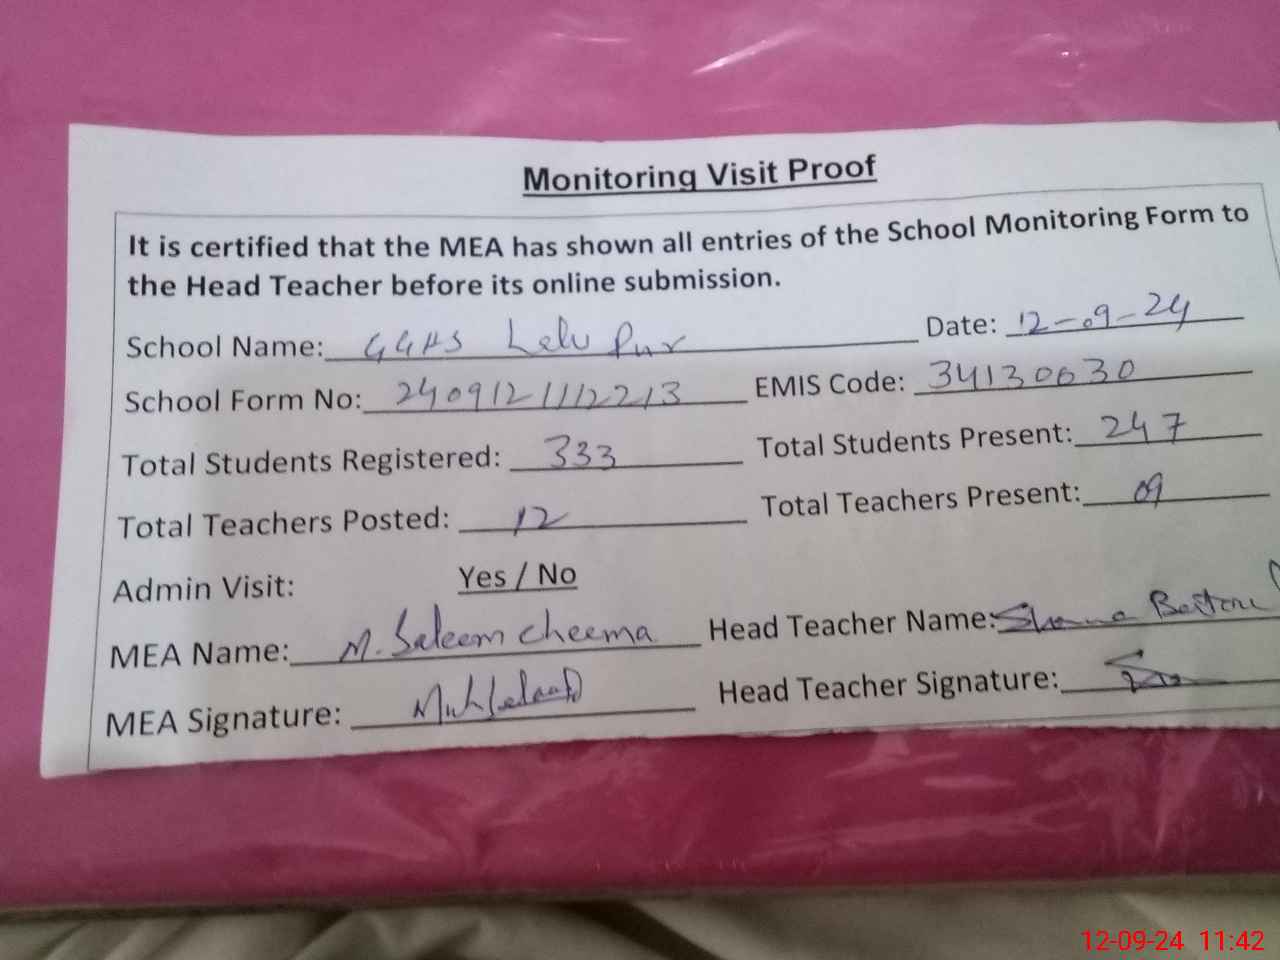 Monitoring Visit Proof
It is certified that the MEA has shown all entries of the School Monitoring Form to
the Head Teacher before its online submission.
School Name: GGHS Lelu Pur Date: 12-09-24
School Form No: 2409121112213 EMIS Code: 34130630
Total Students Registered: 333 Total Students Present: 247
Total Teachers Posted: 12 Total Teachers Present: 09
Admin Visit: Yes / No
MEA Name: M. Saleem Cheema Head Teacher Name:
MEA Signature: Head Teacher Signature:
12-09-24 11:42